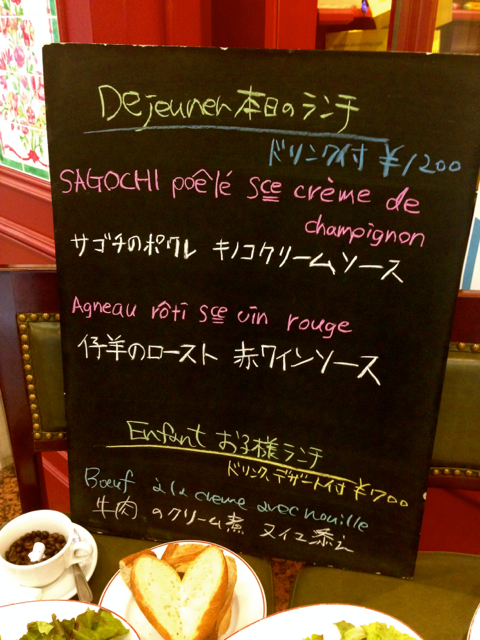 Dejeuner 本日のランチ
ドリンク付 ¥1200
SAGOCHI poêlé sce crème de
champignon
サゴチのポワレ キノコクリームソース
Agneau rôti sce vin rouge
仔羊のロースト 赤ワインソース
Enfant お子様ランチ
ドリンク、デザート付 ¥700
Bœuf à la creme avec nouille
牛肉のクリーム煮 ヌイユ添え